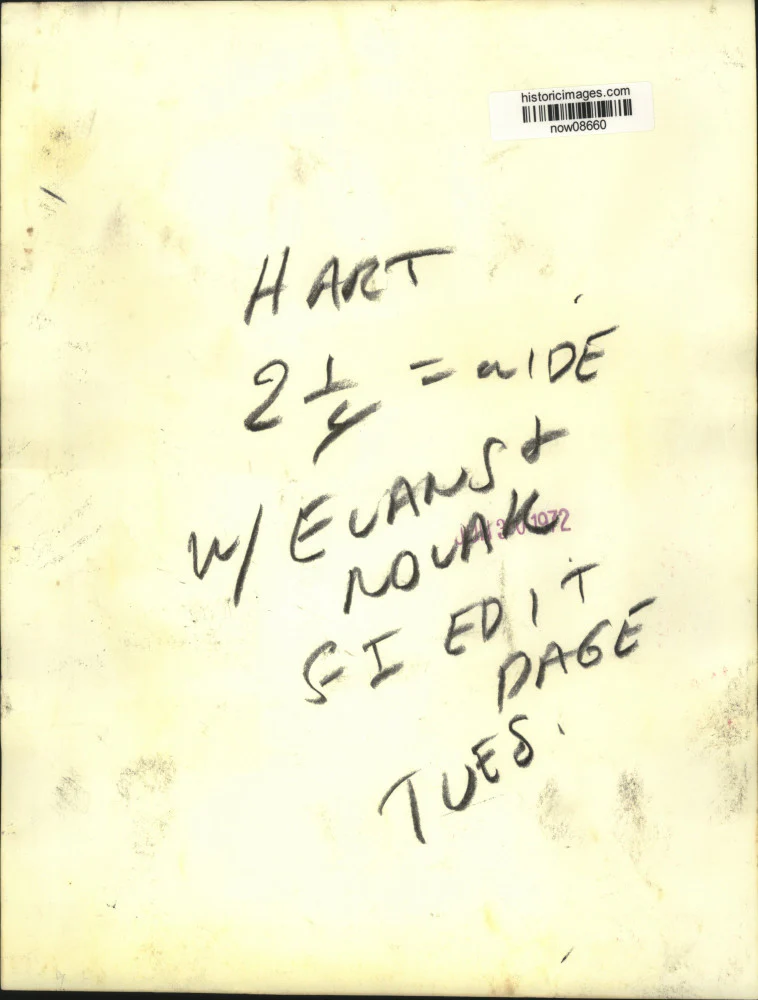 historicimages.com
now08660
HART
2 1/4 = WIDE
W/ EVANS &
NOVAK
1972
EDIT
PAGE
TUES.